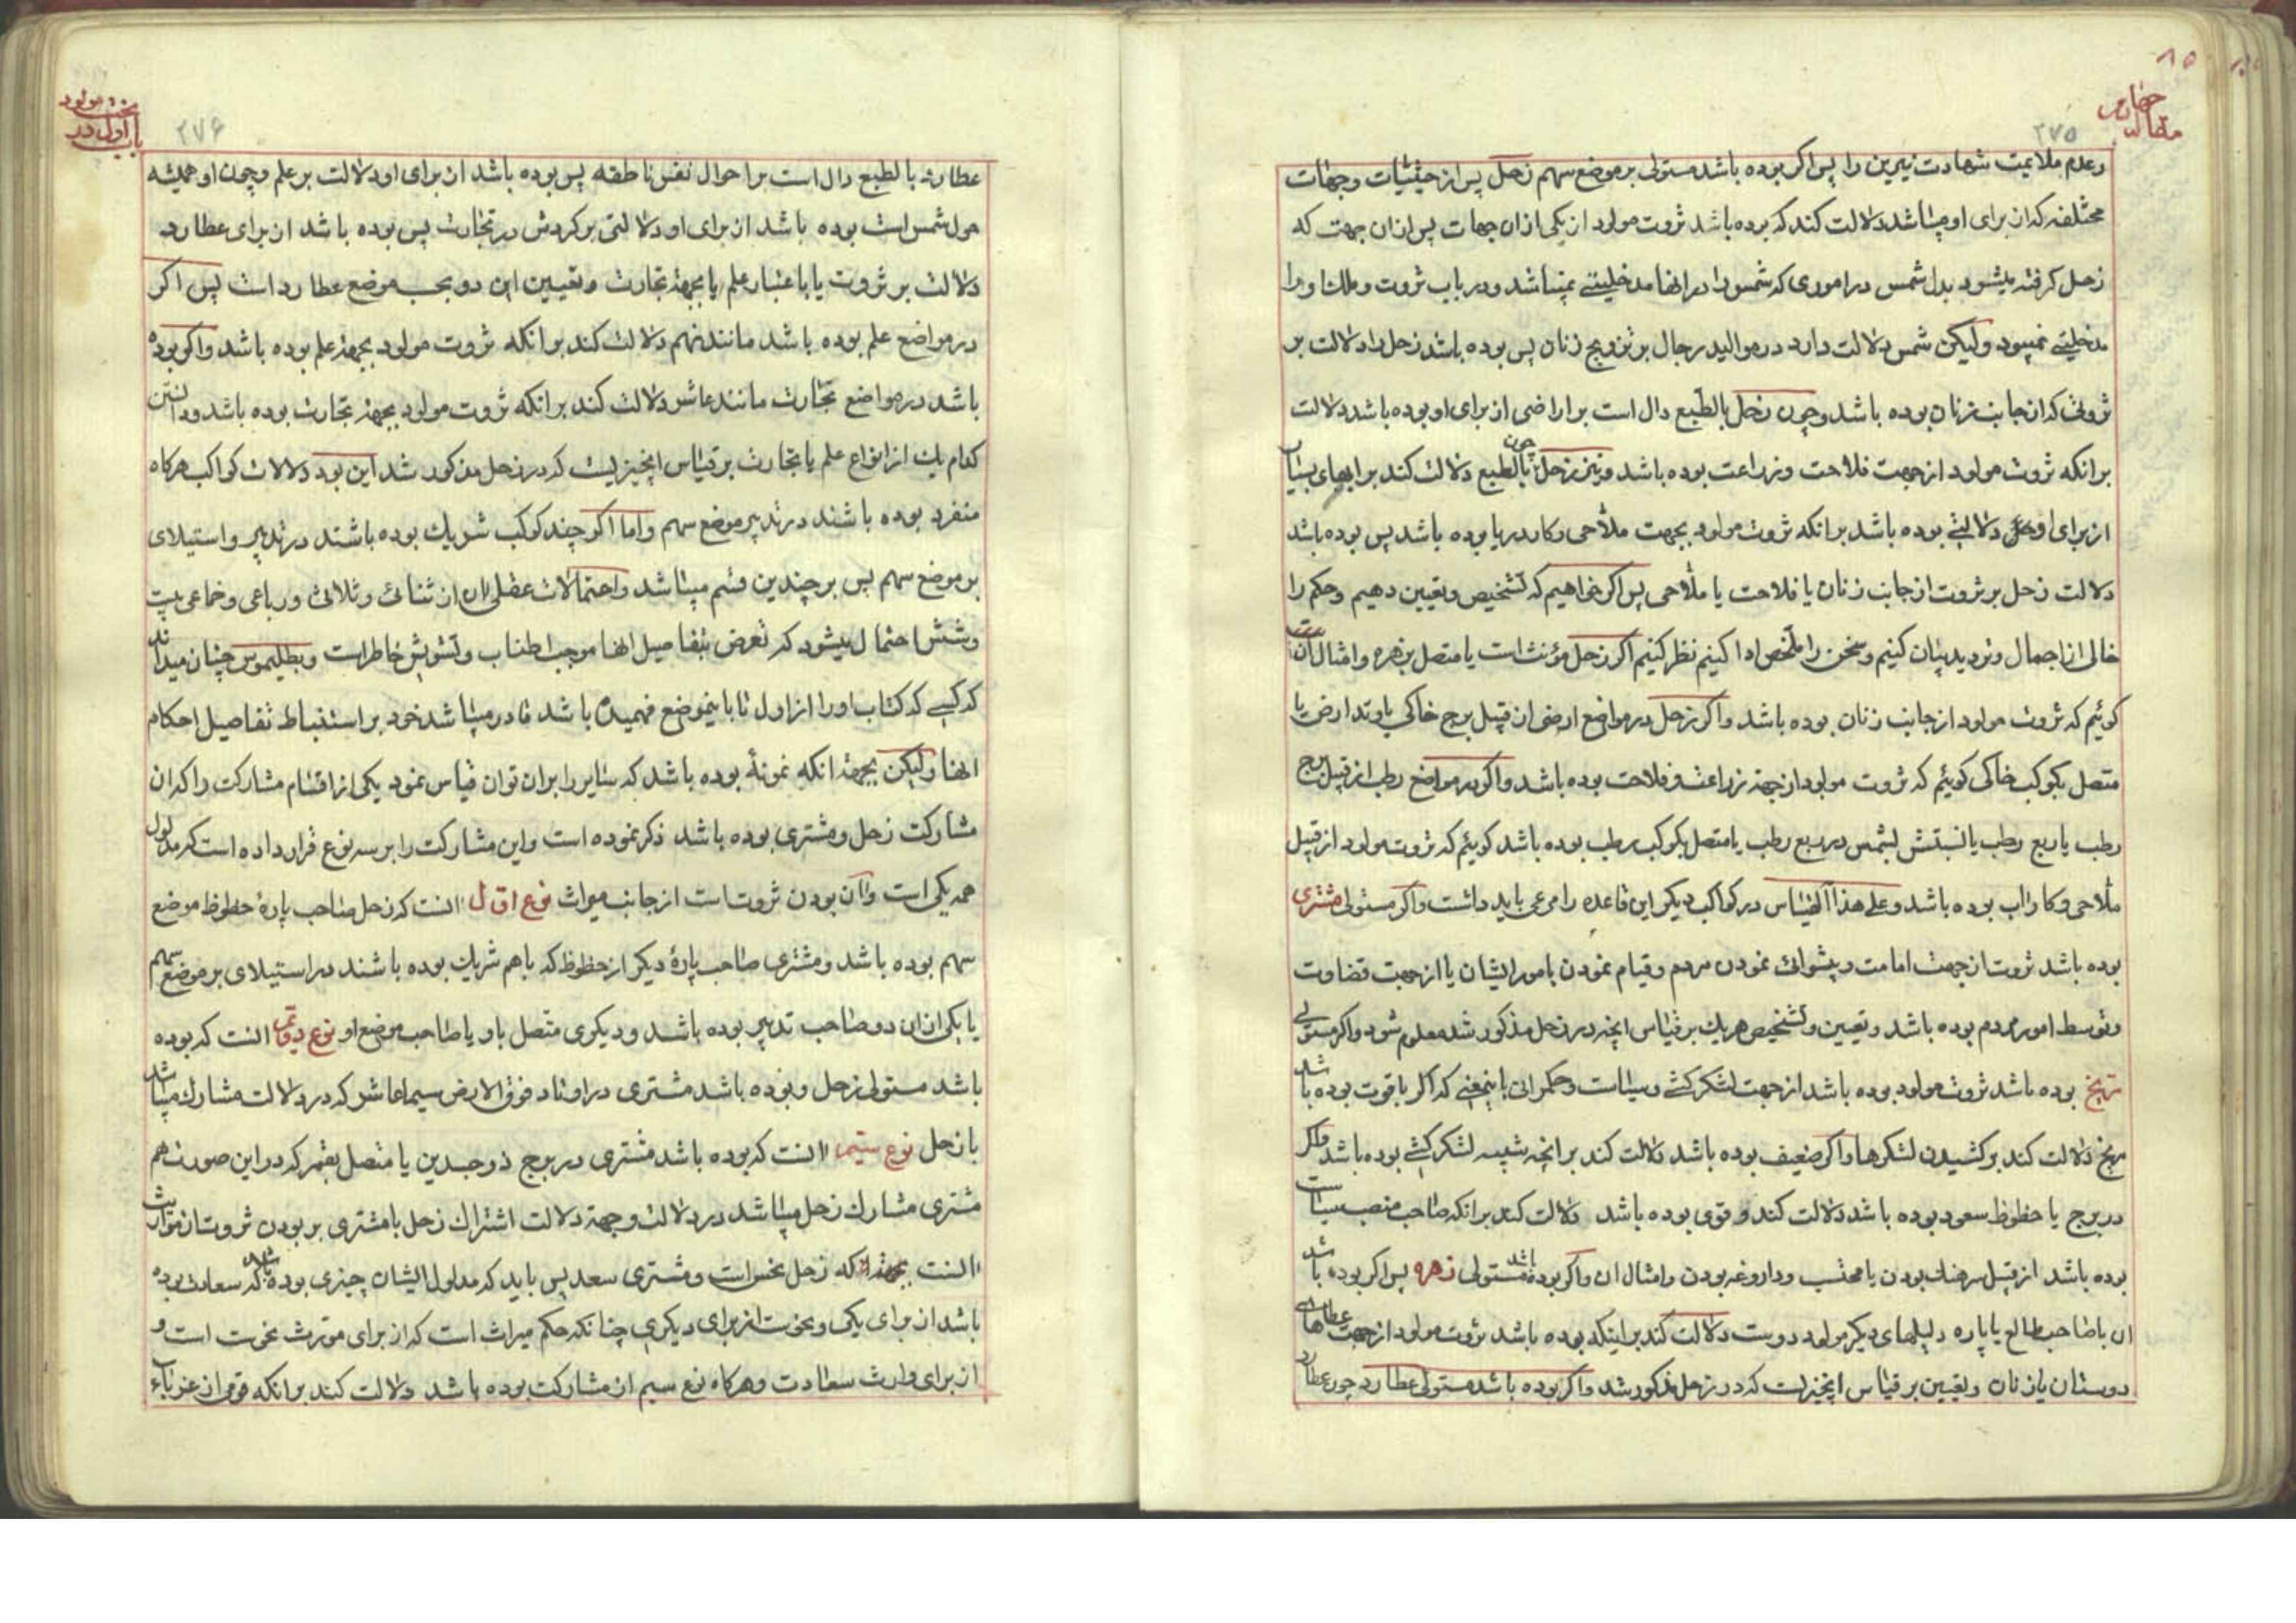 مقاله چهارم
۲۷۵
وعدم ملایمت شهادت نیرین را پس اکر بوده باشد مستولی بر موضع سهم زحل پس از حیثیات وجهات
مختلفه که از برای او میباشد دلالت کند که بوده باشد ثروت مولود از یکی ازان جهات پس ازان جهت که
زحل کرفته میشود بدل شمس در اموری که شمس را در انها مدخلیتی نمیباشد ودر باب ثروت وملك او را
مدخلیتی نمیبود ولیکن شمس دلالت دارد در موالید رجال بر تزویج زنان پس بوده باشد زحل را دلالت بر
ثروتی که از جانب زنان بوده باشد وچون زحل بالطبع دال است بر اراضی از برای او بوده باشد دلالت
برانکه ثروت مولود از جهت فلاحت وزراعت بوده باشد ونیز زحل چون بالطبع دلالت کند بر ابهای بسیار
از برای او دلالتی بوده باشد برانکه ثروت مولود بجهت ملاحی وکار دریا بوده باشد پس بوده باشد
دلالت زحل بر ثروت از جانب زنان یا فلاحت یا ملاحی پس اکر خواهیم که تشخیص وتعیین دهیم وحکم را
خالی از اجمال وتردید بیان کنیم وسخن را ملخص ادا کنیم نظر کنیم اکر زحل مؤنث است یا متصل بزهره وامثال آن
کوئیم که ثروت مولود از جانب زنان بوده باشد واکر زحل در مواضع ارضی از قبیل برج خاکی یا وتد ارض یا
متصل بکوکب خاکی کوئیم که ثروت مولود از جهة زراعت وفلاحت بوده باشد واکر در مواضع رطب از قبیل برج
رطب یا ربع رطب یا نسبتش بشمس در ربع رطب یا متصل بکوکب رطب بوده باشد کوئیم که ثروت مولود از قبیل
ملاحی وکار اب بوده باشد وعلی هذا القیاس در کواکب دیکر این قاعده را مرعی باید داشت واکر مستولی مشتری
بوده باشد ثروت از جهت امامت وپیشوائی نمودن مردم وقیام نمودن بامور ایشان یا از جهت قضاوت
وتوسط امور مردم بوده باشد وتعیین وتشخیص هریك بر قیاس انچه در زحل مذکور شد معلوم شود واکر مستولی
مریخ بوده باشد ثروت مولود بوده باشد از جهت لشکر کشی وسیاست وحکمرانی باینمعنی که اکر باقوت بوده باشد
مریخ دلالت کند بر کشیدن لشکرها واکر ضعیف بوده باشد دلالت کند بر انچه شبیه لشکر کشی بوده باشد واکر
در برج یا حظوظ سعود بوده باشد دلالت کند وقوی بوده باشد دلالت کند برانکه صاحب منصب سیاست
بوده باشد از قبیل سرهنك بودن یا محتسب وداروغه بودن وامثال ان واکر بوده باشد مستولی زهره پس اکر بوده باشد
ان با صاحب طالع یا پاره دلیلهای دیکر مولود دوست دلالت کند بر اینکه بوده باشد ثروت مولود از جهت عطاهای
دوستان یا زنان وتعیین بر قیاس اینچیز است که در زحل مذکور شد واکر بوده باشد مستولی عطارد چون عطارد
باب اول در
۲۷۶
عطارد بالطبع دال است بر احوال نفس ناطقه پس بوده باشد از برای او دلالت بر علم وچون او همیشه
حول شمس است بوده باشد از برای او دلالتی بر کردش در تجارت پس بوده باشد از برای عطارد
دلالت بر ثروت یا باعتبار علم یا بجهة تجارت وتعیین این دو بحسب موضع عطارد است پس اکر
در مواضع علم بوده باشد مانند نهم دلالت کند برانکه ثروت مولود بجهة علم بوده باشد واکر بوده
باشد در مواضع تجارت مانند عاشر دلالت کند برانکه ثروت مولود بجهة تجارت بوده باشد ودانستن
کدام یك از انواع علم یا تجارت بر قیاس اینچیزیست که در زحل مذکور شد این بود دلالات کواکب هرکاه
منفرد بوده باشند در تدبیر موضع سهم واما اکر چند کوکب شریك بوده باشند در تدبیر واستیلای
بر موضع سهم پس بر چندین قسم میباشد واحتمالات عقلی ان از ثنائی وثلاثی ورباعی وخماعی بیست
وشش احتمال میشود که تعرض بتفاصیل انها موجب اطناب وتشویش خاطر است وبطلیموس چنان میداند
که کسی که کتاب او را از اول تا باینموضع فهمیده باشد قادر میباشد خود بر استنباط تفاصیل احکام
انها ولیکن بجهة انکه نمونهٔ بوده باشد که سایر را بران توان قیاس نمود یکی از اقسام مشارکت را که ان
مشارکت زحل ومشتری بوده باشد ذکر نموده است واین مشارکت را بر سه نوع قرار داده است که مدلول
همه یکی است وآن بودن ثروتست از جانب میراث نوع اول انست که زحل صاحب پارهٔ حظوظ موضع
سهم بوده باشد ومشتری صاحب پارهٔ دیکر از حظوظ که باهم شریك بوده باشند در استیلای بر موضع سهم
یا یکی ازان دو صاحب تدبیر بوده باشد ودیکری متصل باو یا صاحب موضع او نوع دویم انست که بوده
باشد مستولی زحل وبوده باشد مشتری در اوتاد فوق الارض سیما عاشر که در دلالت مشارك میباشد
با زحل نوع سیم انست که بوده باشد مشتری در برج ذوجسدین یا متصل بقمر که در این صورت هم
مشتری مشارك زحل میباشد در دلالت وجهة دلالت اشتراك زحل با مشتری بر بودن ثروت از مواریث
انست بجهة انکه زحل نحس است ومشتری سعد پس باید که مدلول ایشان چیزی بوده باشد که سعادت بوده
باشد از برای یکی ونحوست از برای دیکری چنانکه حکم میراث است که از برای مورث نحوست است و
از برای وارث سعادت وهرکاه نوع سیم از مشارکت بوده باشد دلالت کند برانکه قومی از غرباء